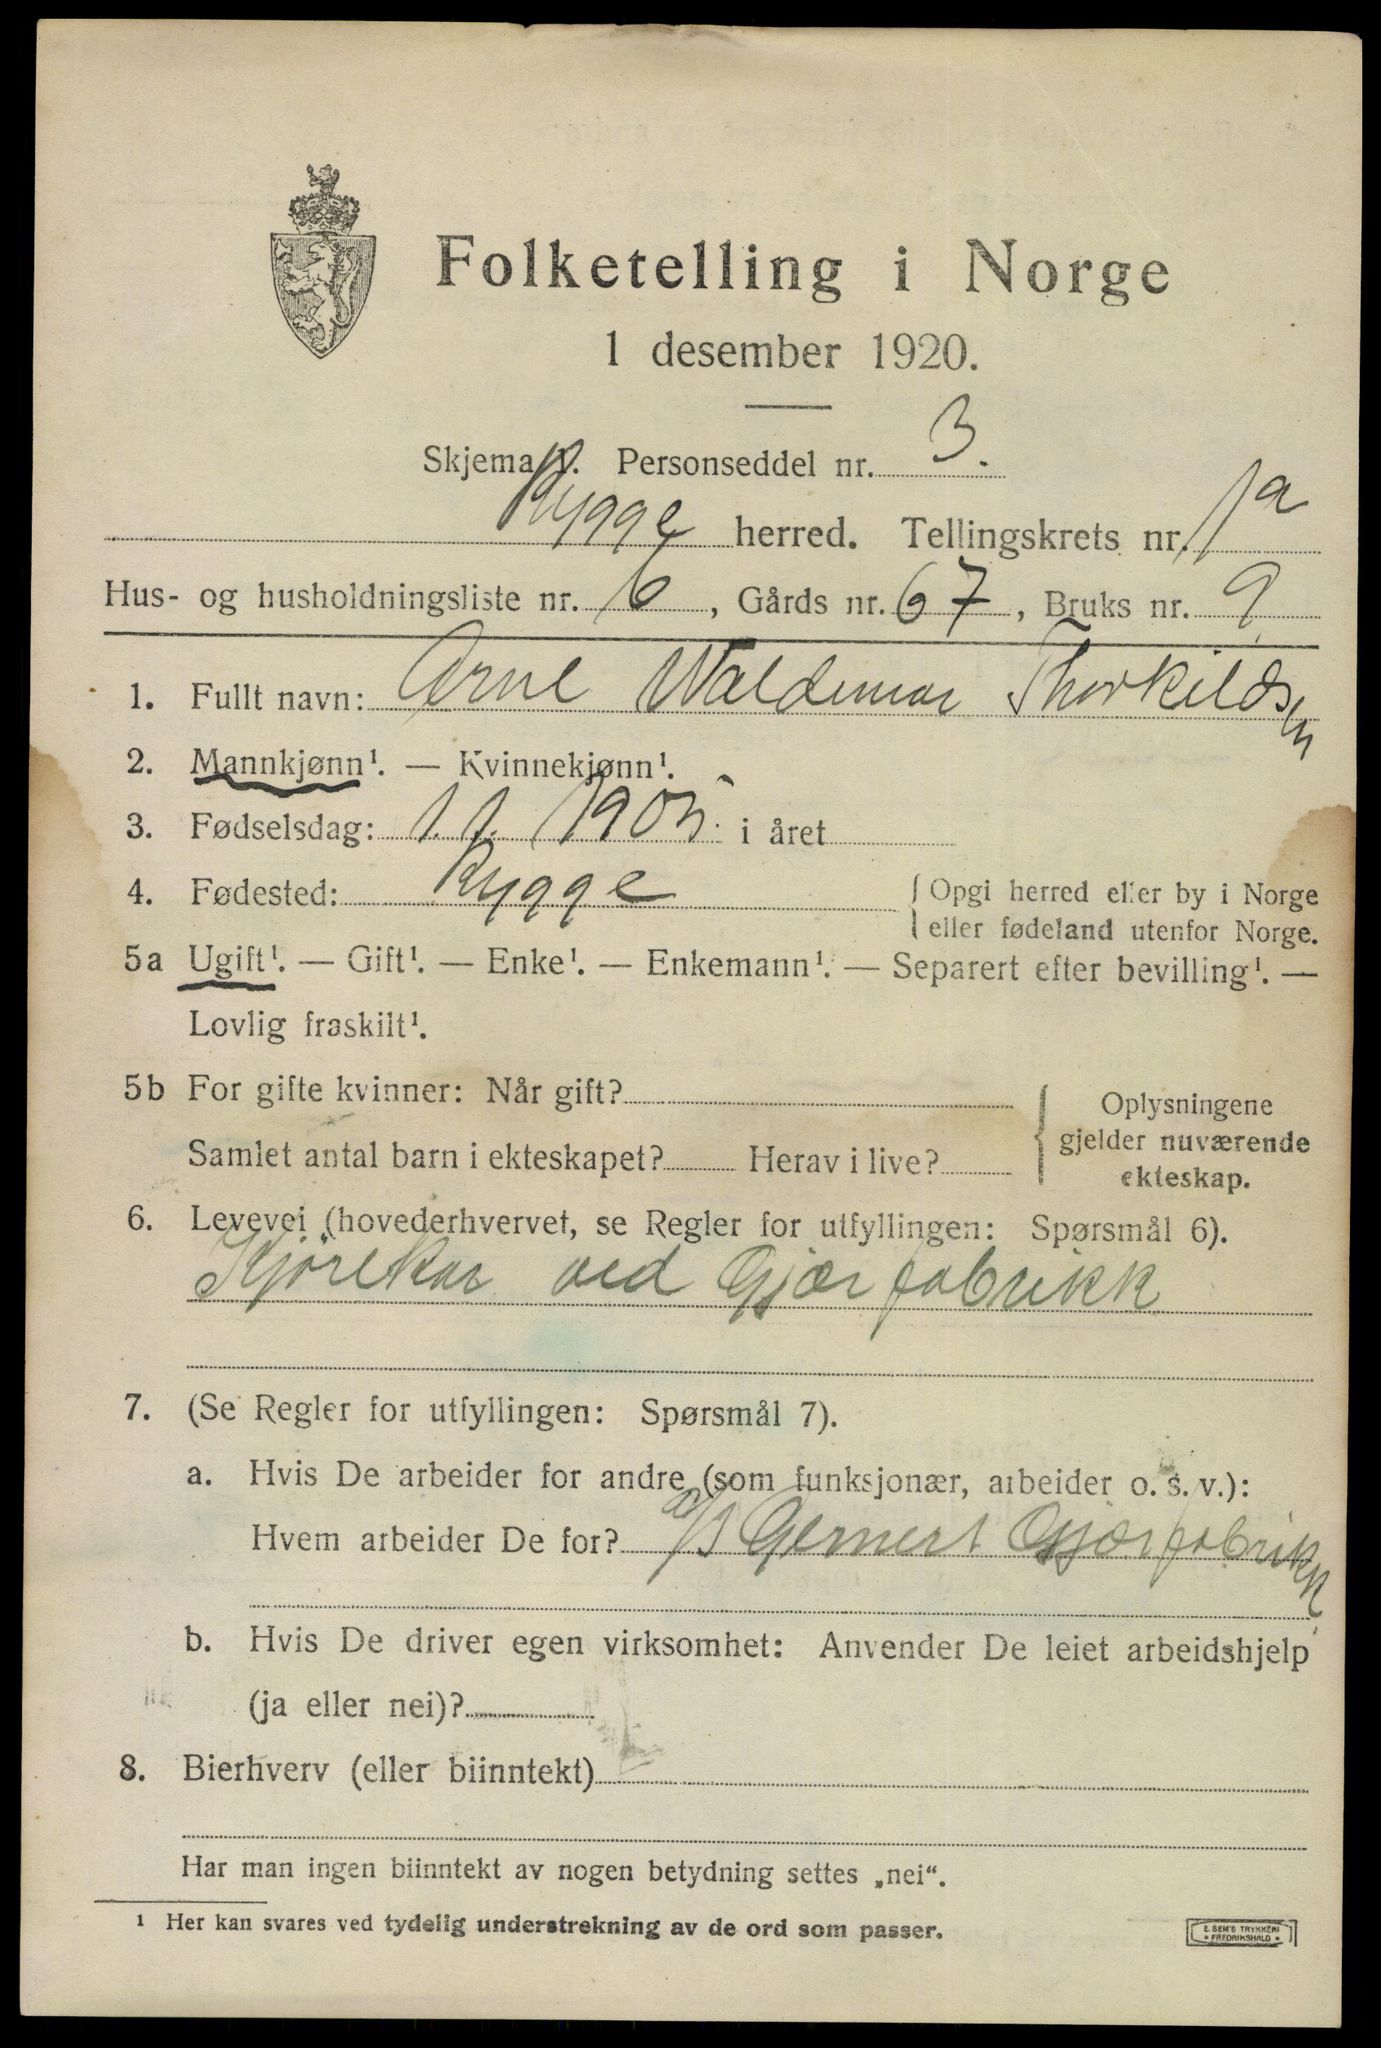 Folketelling i Norge
1 desember 1920.
Skjema V. Personseddel nr. 3.
Rygge herred. Tellingskrets nr. 1a
Hus- og husholdningsliste nr. 6, Gårds nr. 67, Bruks nr. 9
1. Fullt navn: Arne Waldemar Thorkildsen
2. Mannkjønn¹. — Kvinnekjønn¹.
3. Fødselsdag: 1.1. 1905. i året
4. Fødested: Rygge { Opgi herred eller by i Norge
eller fødeland utenfor Norge.
5a Ugift¹. — Gift¹. — Enke¹. — Enkemann¹. — Separert efter bevilling¹. —
Lovlig fraskilt¹.
5b For gifte kvinner: Når gift? Oplysningene
gjelder nuværende
Samlet antal barn i ekteskapet? Herav i live?
ekteskap.
6. Levevei (hovederhvervet, se Regler for utfyllingen: Spørsmål 6).
Kjørekar ved Gjærfabrikk
7. (Se Regler for utfyllingen: Spørsmål 7).
a. Hvis De arbeider for andre (som funksjonær, arbeider o. s. v.):
Hvem arbeider De for? a/s Gernert Gjærfabrikk
b. Hvis De driver egen virksomhet: Anvender De leiet arbeidshjelp
(ja eller nei)?
8. Bierhverv (eller biinntekt)
Har man ingen biinntekt av nogen betydning settes „nei“.
¹ Her kan svares ved tydelig understrekning av de ord som passer.
E. SEM'S TRYKKERI
• FREDRIKSHALD •